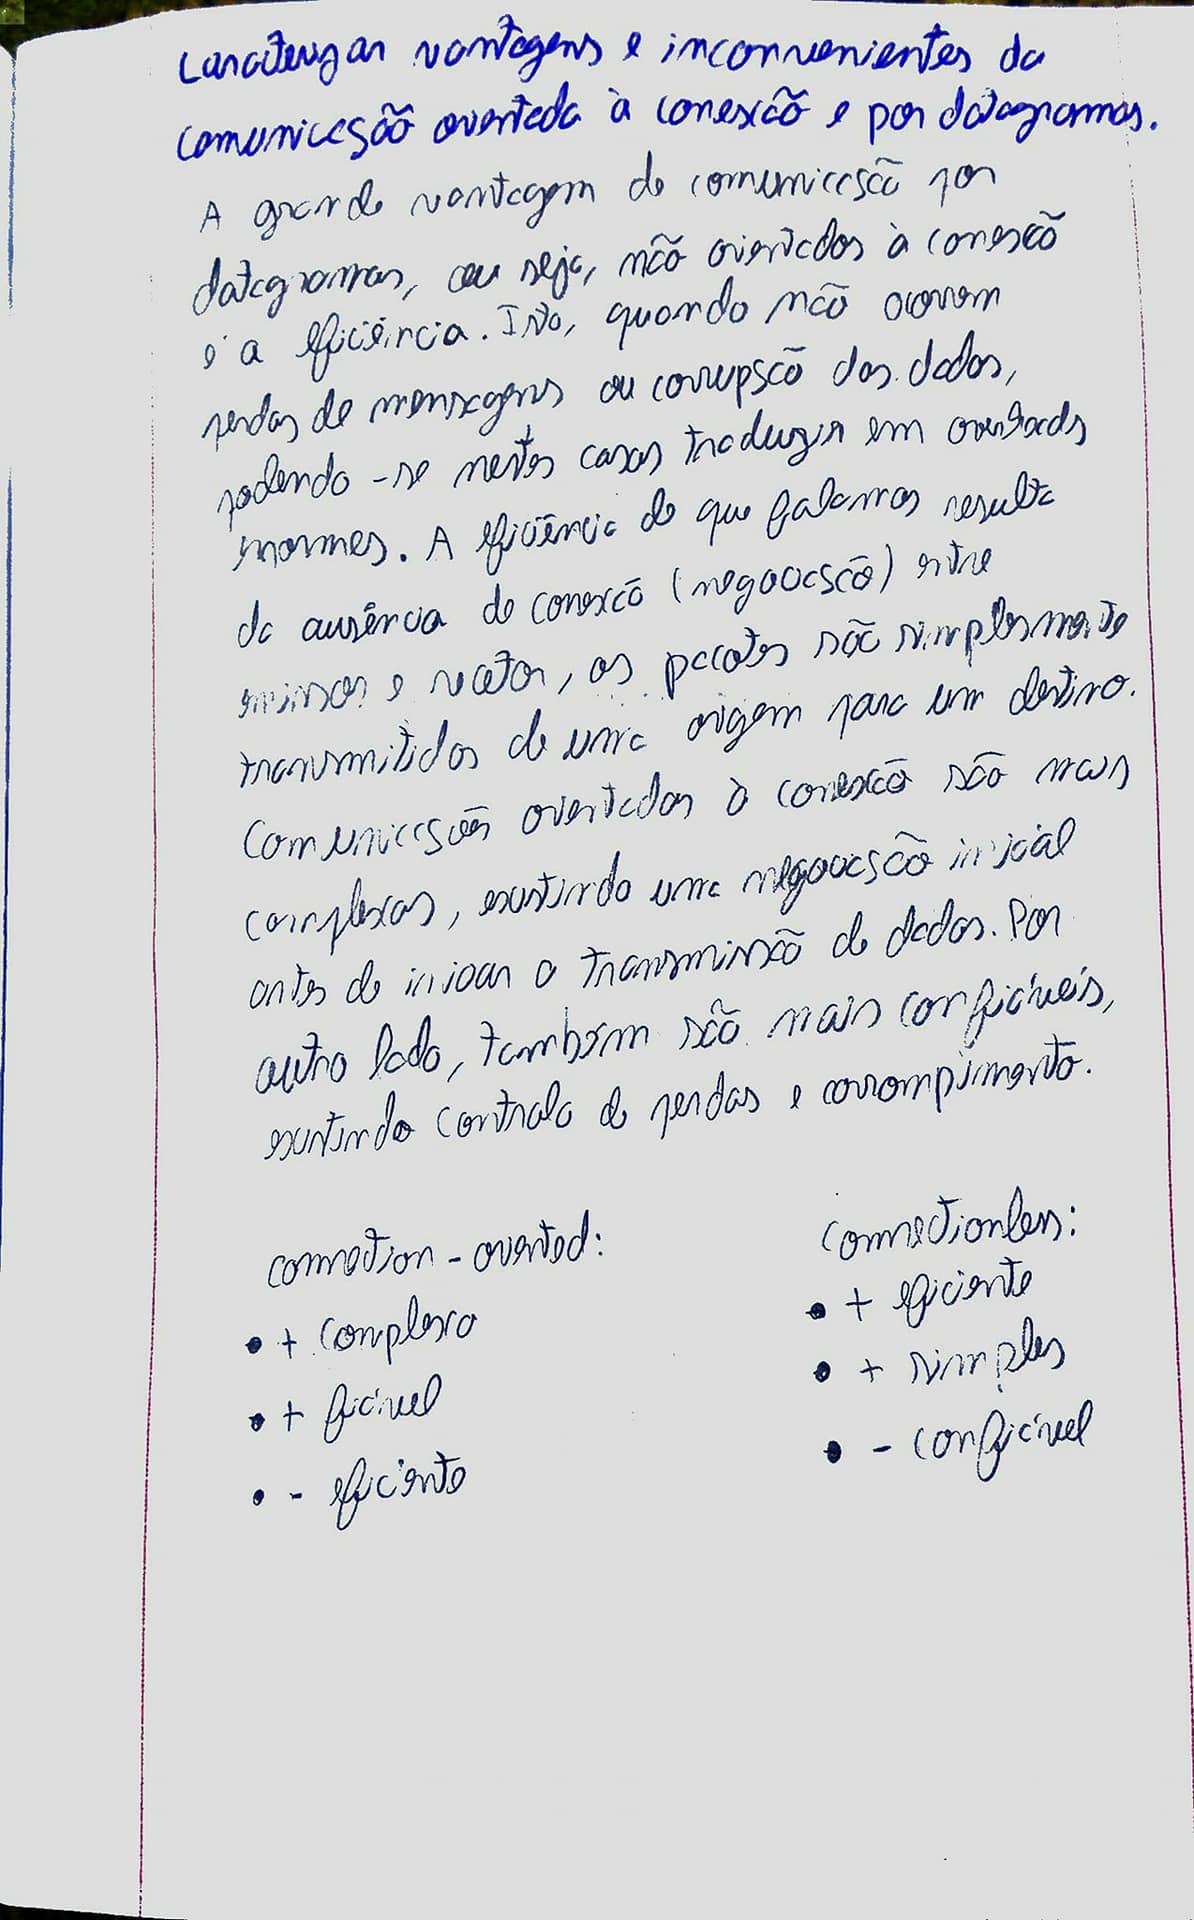 Caracterizar vantagens e inconvenientes da
comunicação orientada à conexão e por datagramas.
A grande vantagem de comunicação por
datagramas, ou seja, não orientados à conexão
é a eficiência. Isto, quando não ocorrem
perdas de mensagens ou corrupção dos dados,
podendo-se nestes casos traduzir em overheads
enormes. A eficiência de que falamos resulta
da ausência de conexão (negociação) entre
emissor e recetor, os pacotes são simplesmente
transmitidos de uma origem para um destino.
Comunicações orientadas à conexão são mais
complexas, existindo uma negociação inicial
antes de iniciar a transmissão de dados. Por
outro lado, também são mais confiáveis,
existindo controlo de perdas e corrompimento.
connection-oriented:
• + complexo
• + fiável
• - eficiente
Connectionless:
• + eficiente
• + simples
• - confiável